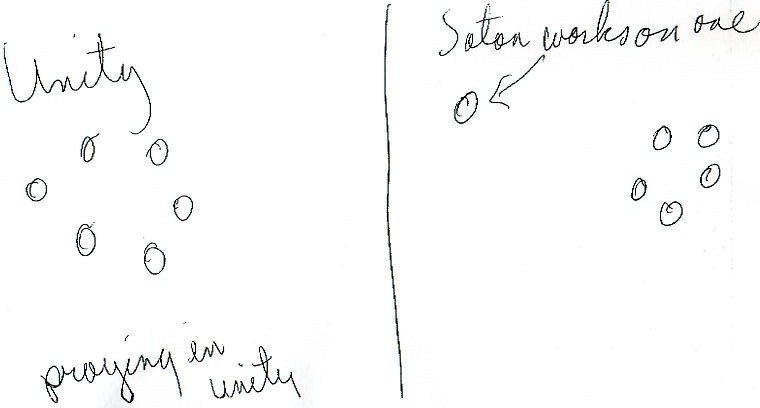 Unity
praying in
unity
Satan works on one